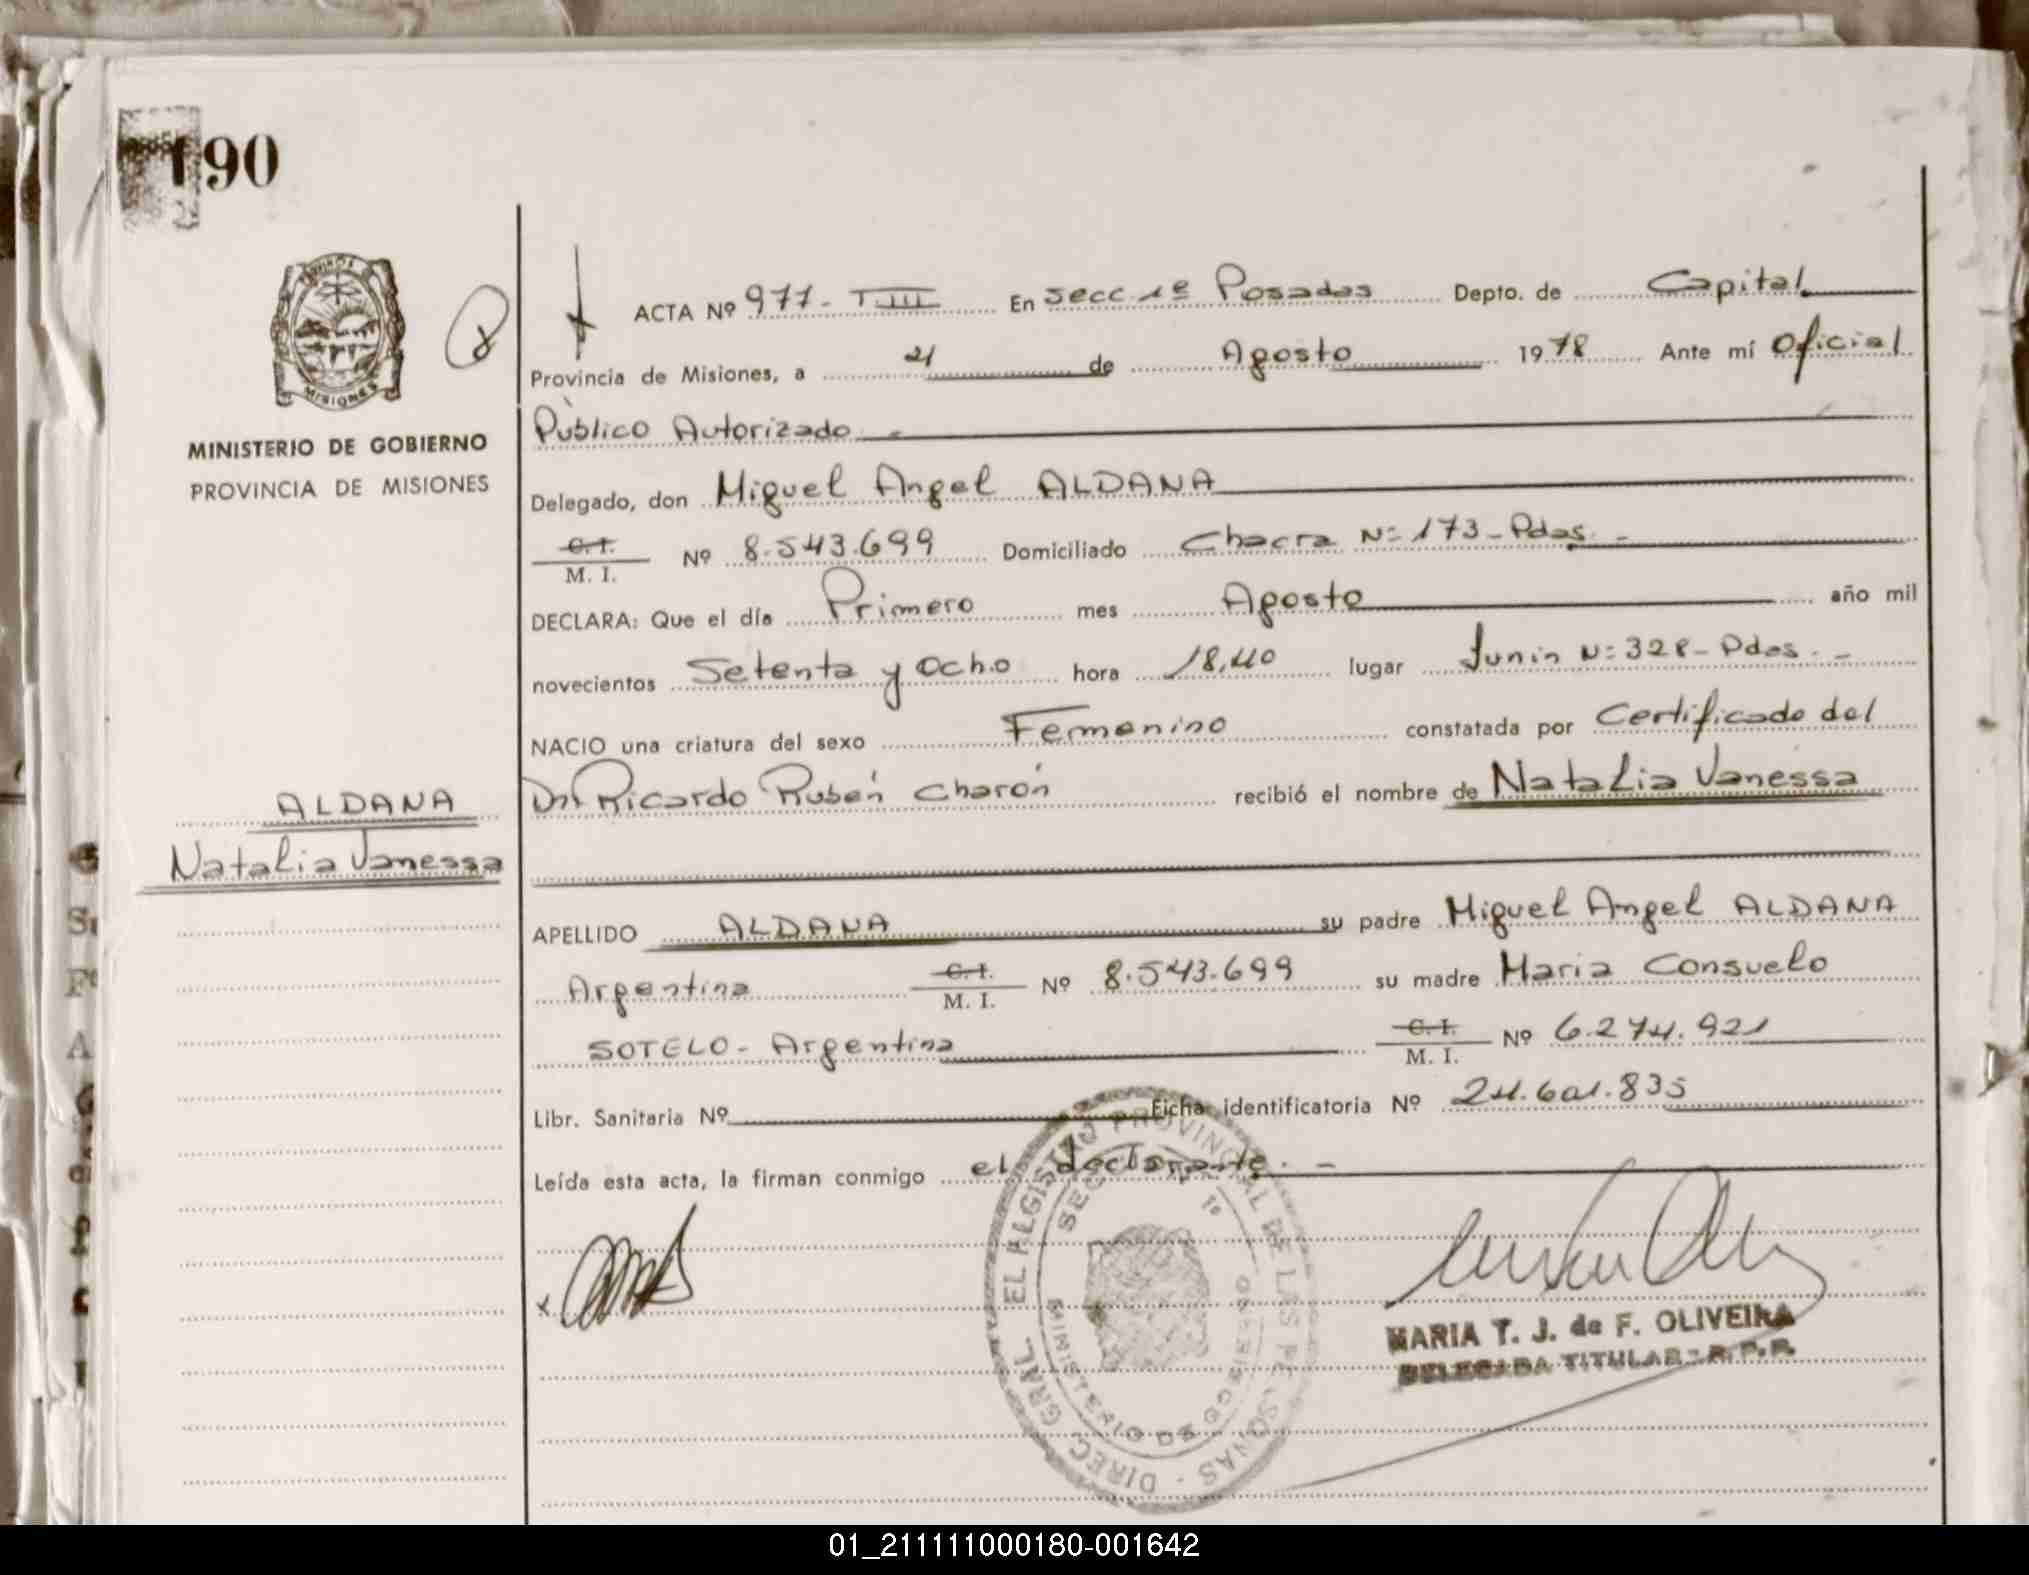 190
MISIONES
MINISTERIO DE GOBIERNO
PROVINCIA DE MISIONES
ACTA Nº 977- TIII En secc 1º Posadas Depto. de Capital
Provincia de Misiones, a 21 de Agosto 1978 Ante mí Oficial
Público Autorizado
Delegado, don Miguel Angel ALDANA
C. I. / M. I. Nº 8.543.699 Domiciliado Chacra Nº 173-Pdas.-
DECLARA: Que el día Primero mes Agosto año mil
novecientos Setenta y Ocho hora 18,40 lugar Junin Nº 328-Pdas.-
NACIO una criatura del sexo Femenino constatada por Certificado del
Dr. Ricardo Rubén Charón recibió el nombre de Natalia Vanessa
ALDANA
Natalia Vanessa
APELLIDO ALDANA su padre Miguel Angel ALDANA
Argentina C. I. / M. I. Nº 8.543.699 su madre Maria Consuelo
SOTELO- Argentina C. I. / M. I. Nº 6.274.921
Libr. Sanitaria Nº Ficha identificatoria Nº 24.601.835
Leída esta acta, la firman conmigo el declarante.-
DIREC. GRAL. EL REGISTRO PROVINCIAL DE LAS PERSONAS
SECC 1º
MINISTERIO DE GOBIERNO
MARIA T. J. de F. OLIVEIRA
DELEGADA TITULAR - R.P.P.
01_211111000180-001642